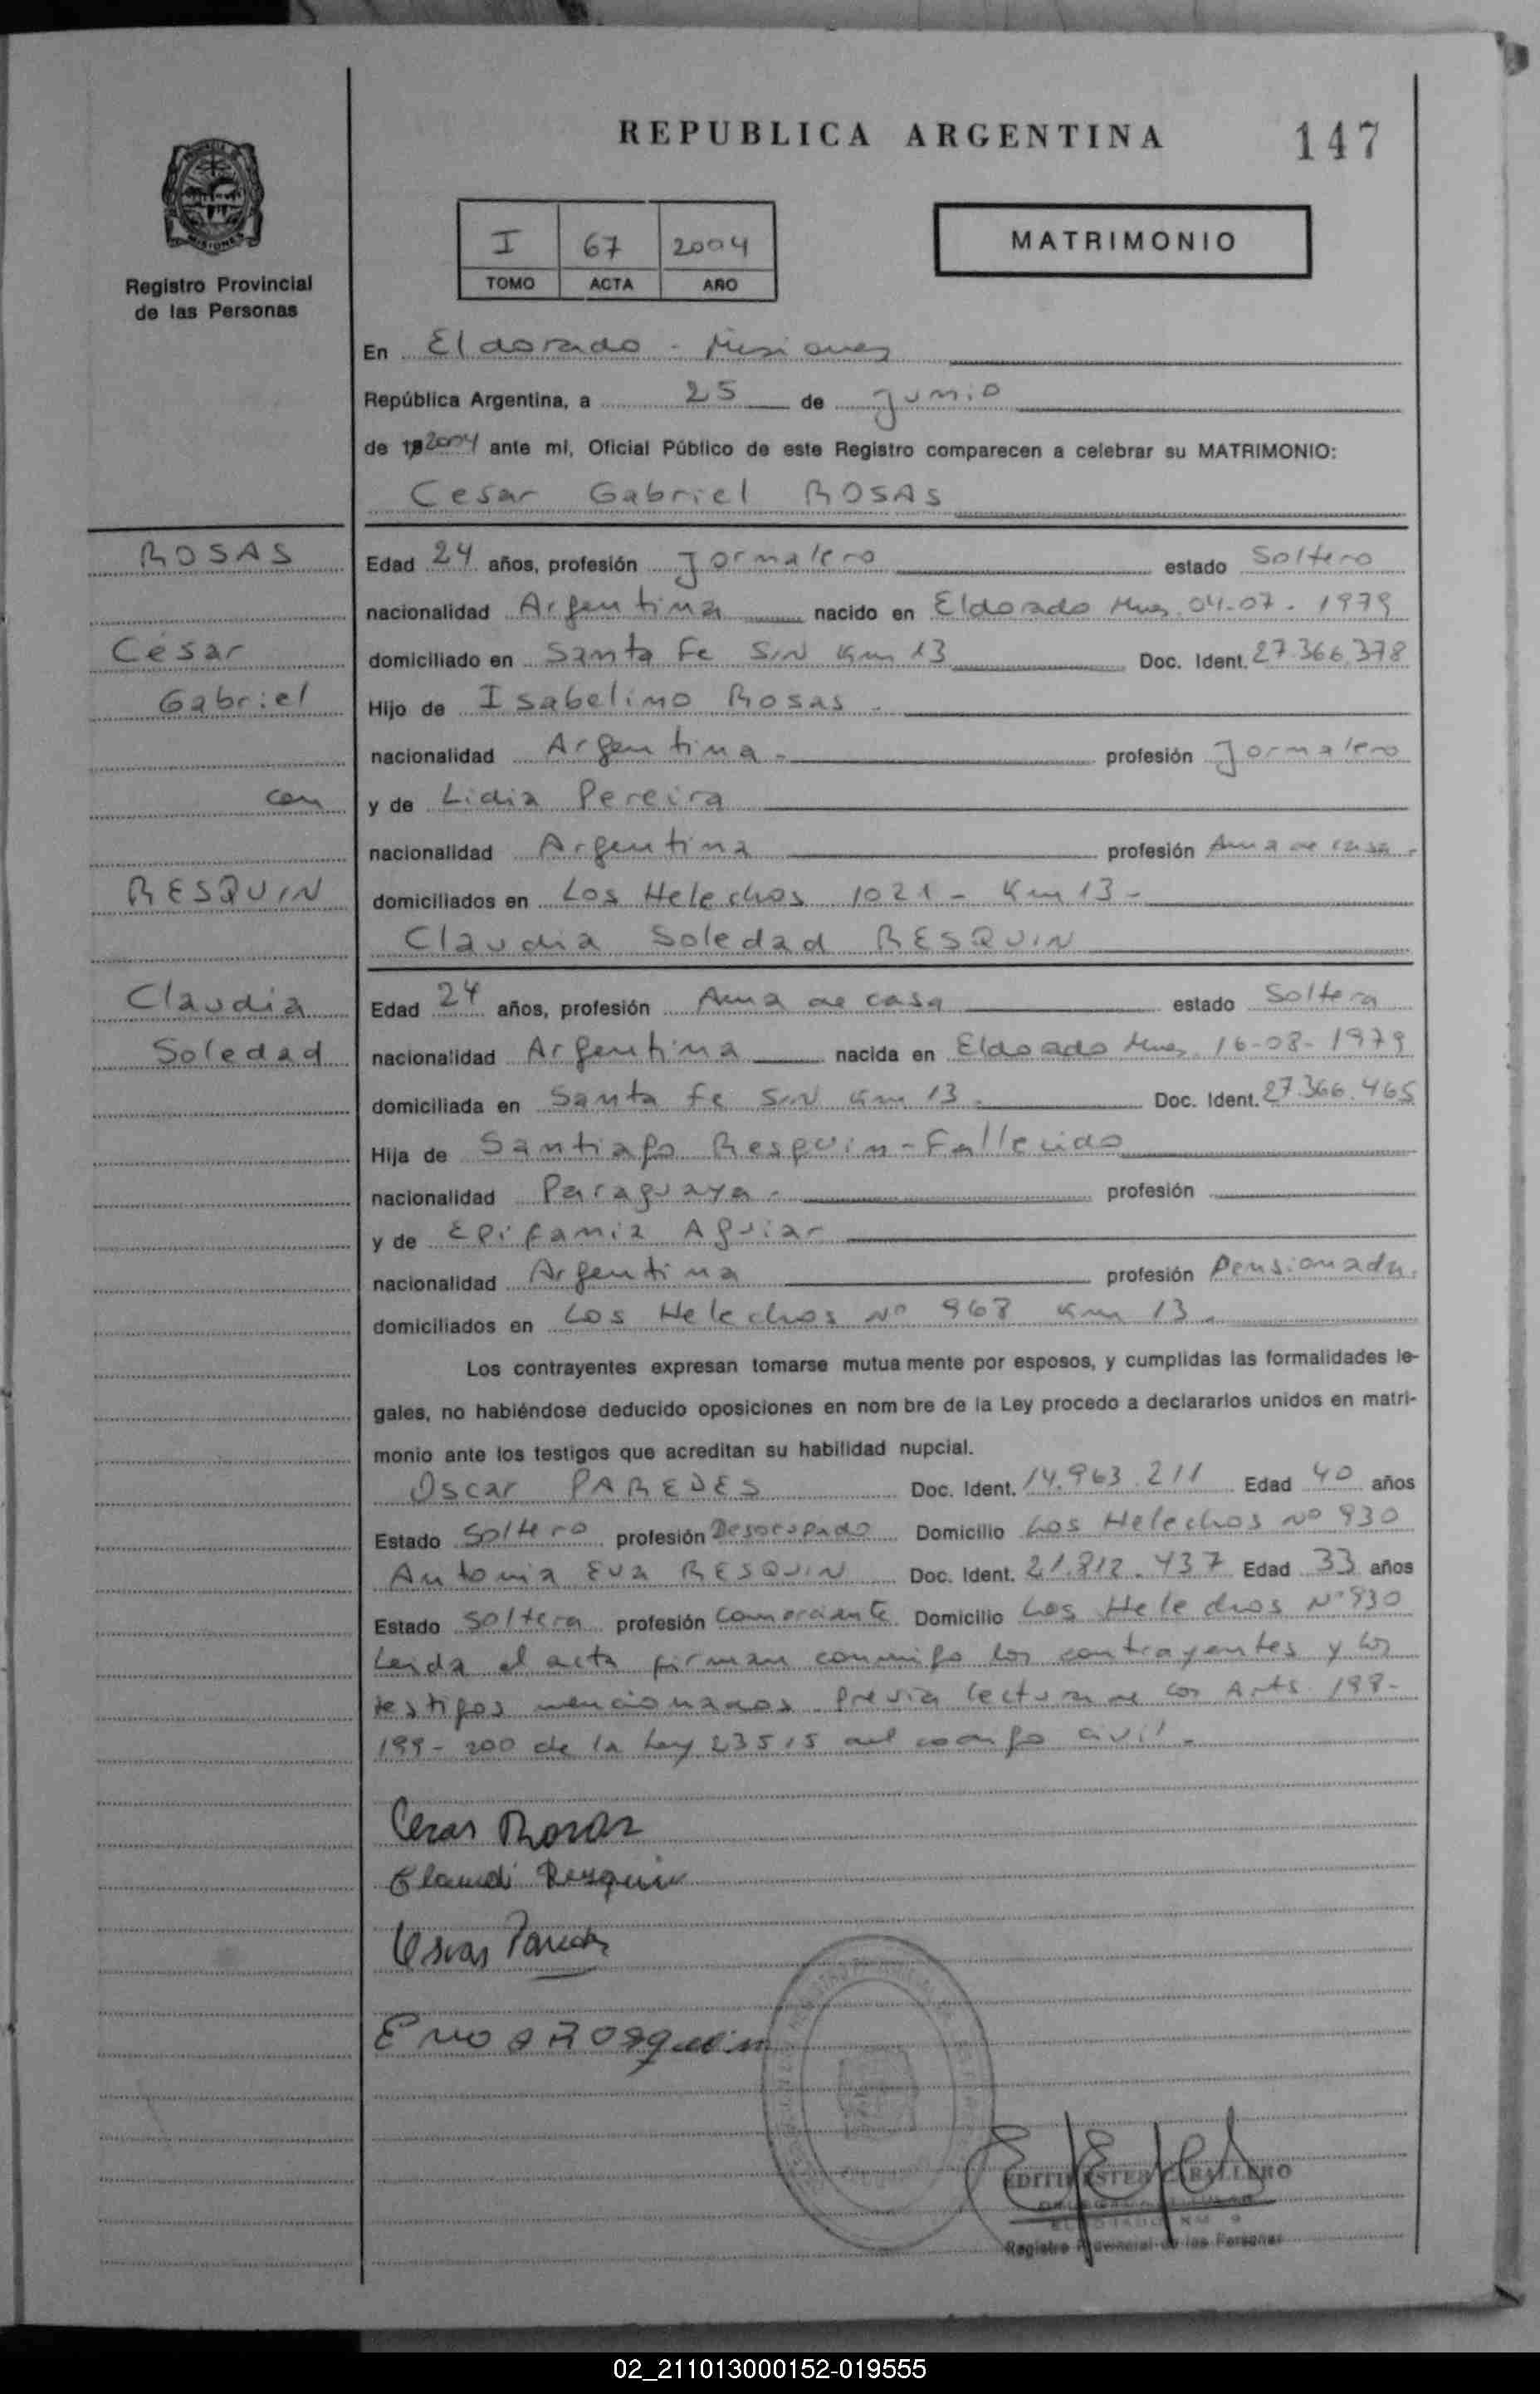 REPUBLICA ARGENTINA
147
MISIONES
Registro Provincial
de las Personas
I 67 2004
TOMO ACTA AÑO
MATRIMONIO
En Eldorado - Misiones
República Argentina, a 25 de Junio
de 192004 ante mí, Oficial Público de este Registro comparecen a celebrar su MATRIMONIO:
Cesar Gabriel ROSAS
ROSAS
César
Gabriel
con
RESQUIN
Claudia
Soledad
Edad 24 años, profesión Jornalero estado Soltero
nacionalidad Argentina nacido en Eldorado Mnes. 04-07-1979
domiciliado en Santa Fe S/N Km 13 Doc. Ident. 27.366.378
Hijo de Isabelino Rosas.
nacionalidad Argentina - profesión Jornalero
y de Lidia Pereira
nacionalidad Argentina profesión Ama de casa.
domiciliados en Los Helechos 1021 - Km 13 -
Claudia Soledad RESQUIN
Edad 24 años, profesión Ama de casa estado Soltera
nacionalidad Argentina nacida en Eldorado Mnes. 16-08-1979
domiciliada en Santa Fe S/N Km 13. Doc. Ident. 27.366.465
Hija de Santiago Resquin - Fallecido
nacionalidad Paraguaya. profesión
y de Epifania Aguiar
nacionalidad Argentina profesión Pensionada.
domiciliados en Los Helechos Nº 968 Km 13.
Los contrayentes expresan tomarse mutua mente por esposos, y cumplidas las formalidades le-
gales, no habiéndose deducido oposiciones en nom bre de la Ley procedo a declararlos unidos en matri-
monio ante los testigos que acreditan su habilidad nupcial.
Oscar PAREDES Doc. Ident. 14.963.211 Edad 40 años
Estado Soltero profesión Desocupado Domicilio Los Helechos Nº 930
Antonia Eva RESQUIN Doc. Ident. 21.812.437 Edad 33 años
Estado Soltera profesión Comerciante Domicilio Los Helechos Nº 930
Leida el acta firman conmigo los contrayentes y los
testigos mencionados previa lectura de los Arts. 198-
199-200 de la Ley 23515 del codigo civil.
Cesar Rosas
Claudi Resquin
Oscar Paredes
Eva Resquin
EDITH ESTER CABALLERO
Registro Provincial de las Personas
02_211013000152-019555